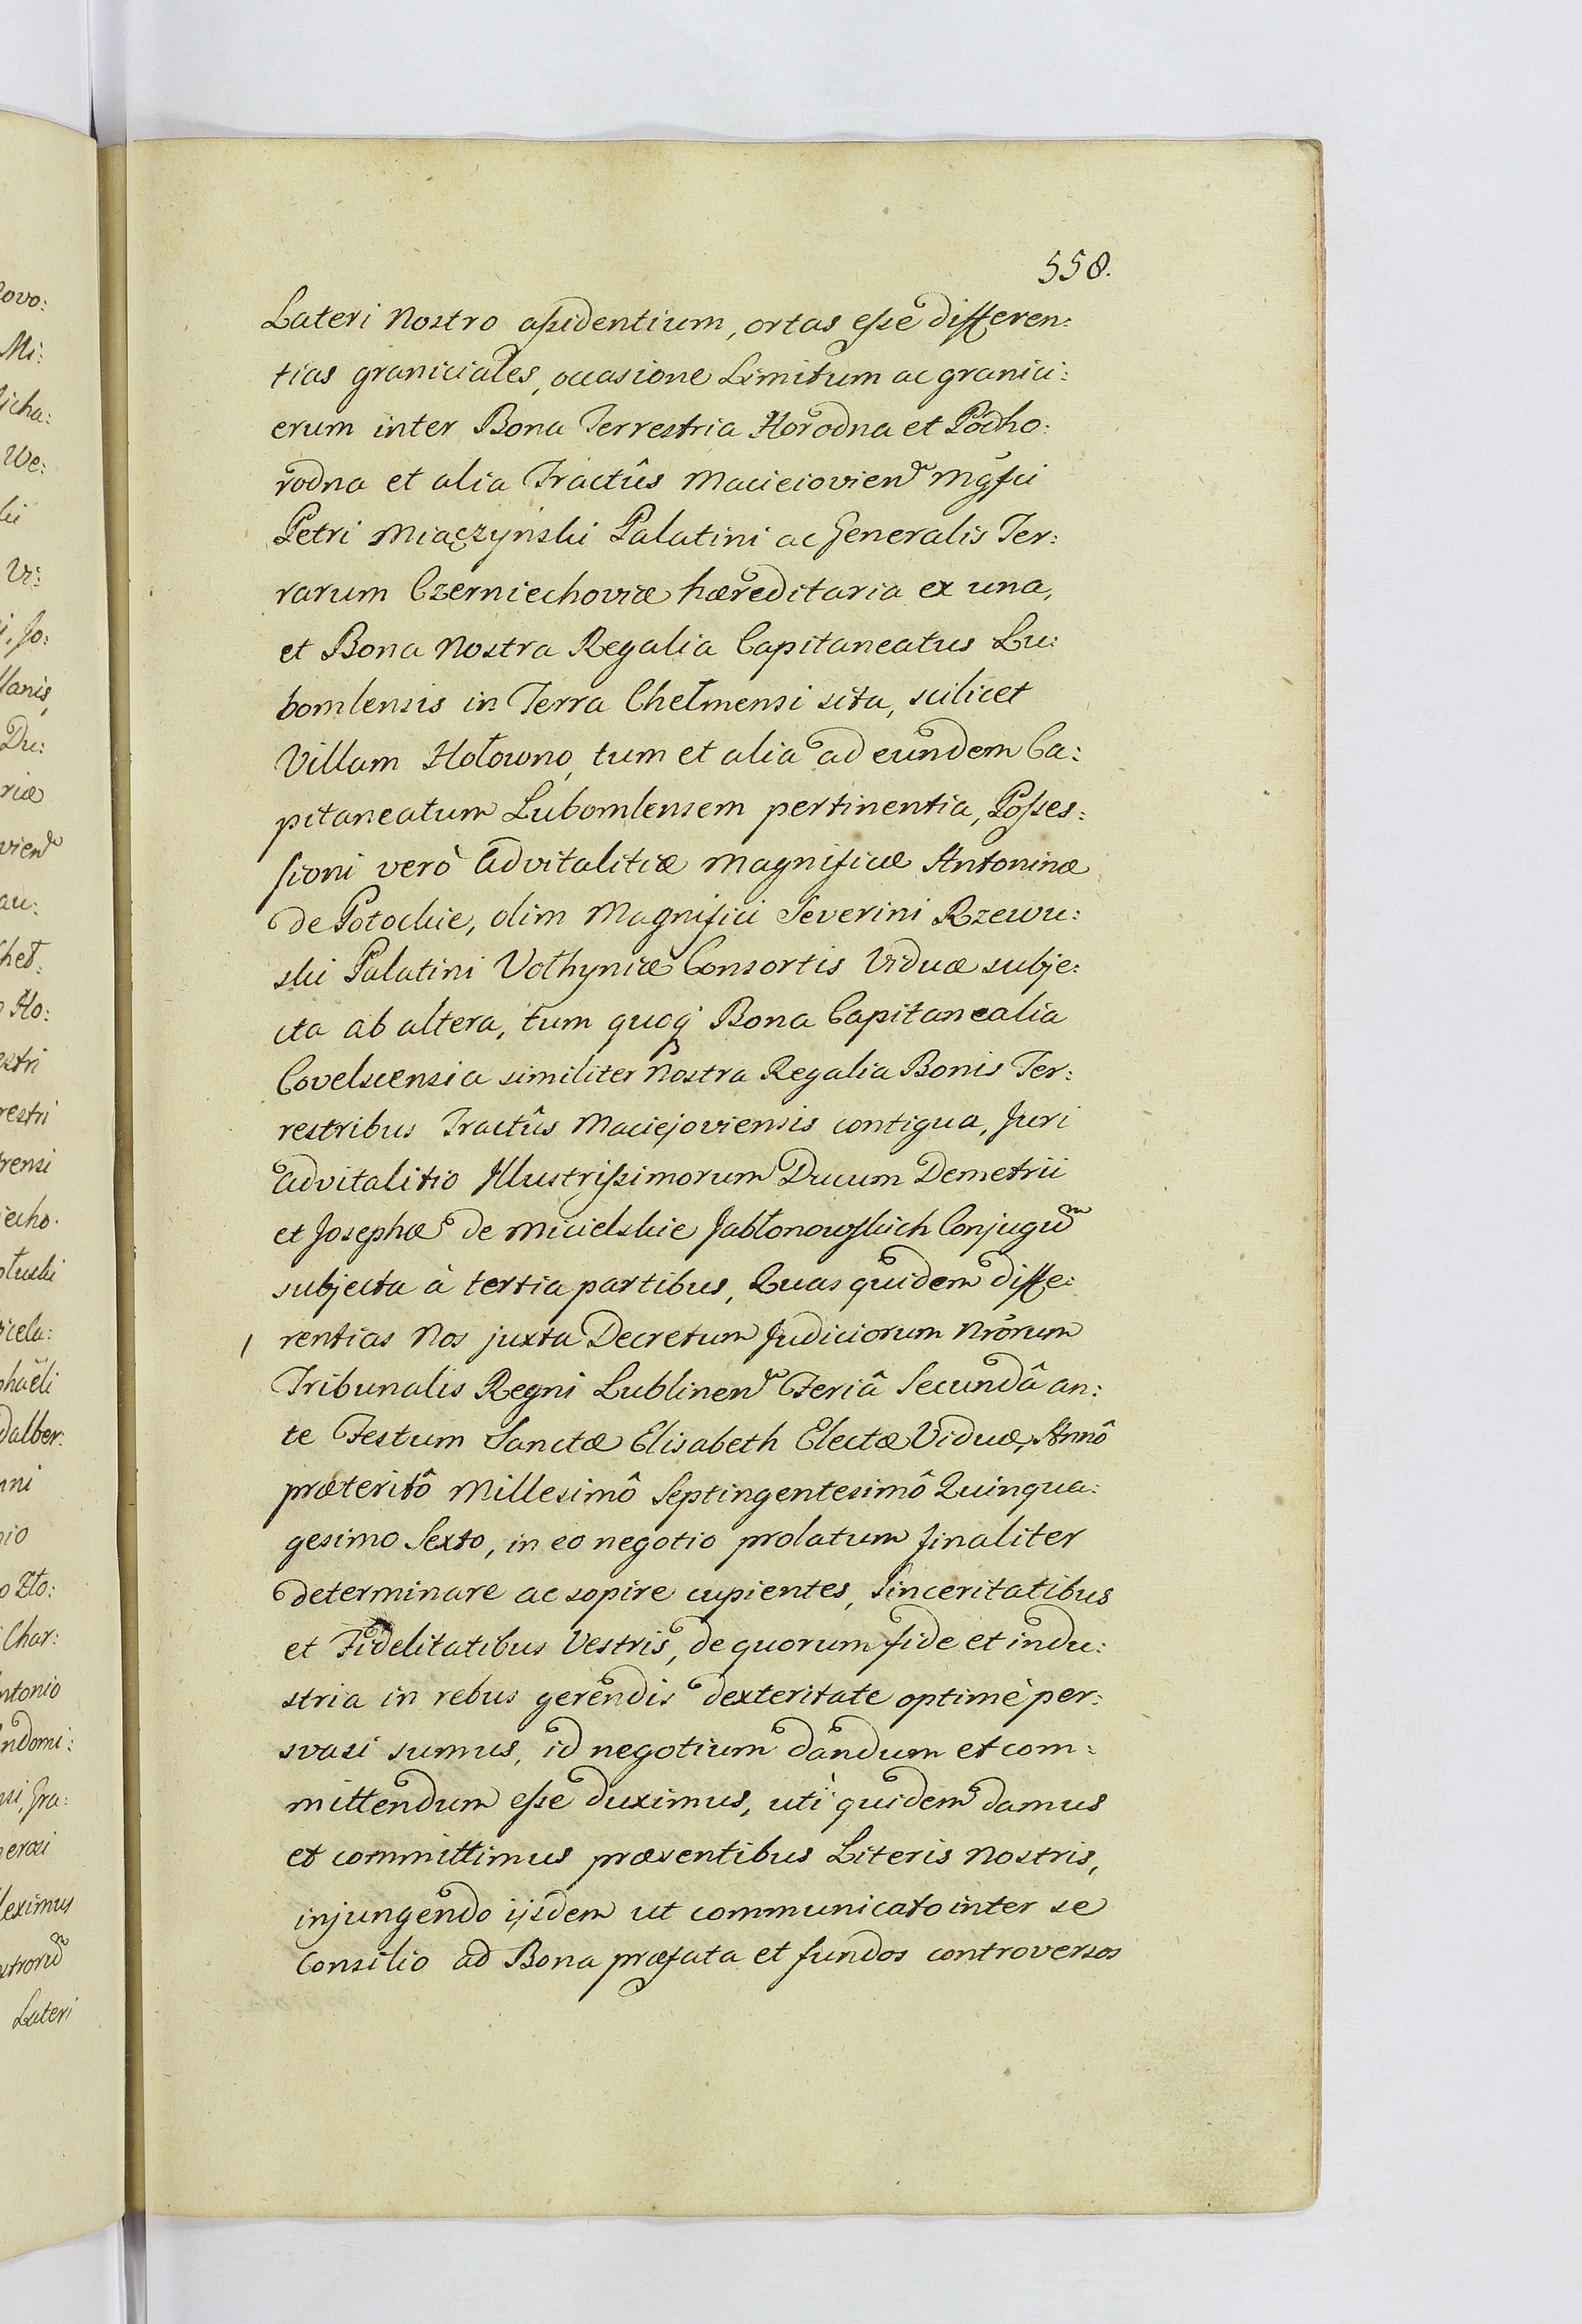 558.
Lateri Nostro aſsidentium, ortas eſse differen:
tias graniciales, occasione Limitum ac granici:
erum inter Bona Terrestria Horodna et Podho:
rodna et alia Tractûs Macieiovien̄ Mg̃fici
Petri Miączyński Palatini ac Generalis Ter:
rarum Czerniechoviæ hæreditaria ex una,
et Bona Nostra Regalia Capitaneatus Lu:
bomlensis in Terra Chełmensi sita, scilicet
Villam Hołowno, tum et alia ad eundem Ca:
pitaneatum Lubomlensem pertinentia, Poſses:
sioni verò Advitalitiæ Magnificæ Antoninæ
de Potockie, olim Magnifici Severini Rzewu:
ski Palatini Vołhyniæ Consortis Viduæ subje:
cta ab altera, tum quoq; Bona Capitanealia
Covelscensia similiter Nostra Regalia Bonis Ter:
restribus Tractûs Maciejoviensis contigua, Juri
Advitalitio Jllustriſsimorum Ducum Demetrii
et Josephæ de Micielskie Jabłonowskich Conjugũ
subjecta à tertia partibus, Quas quidem diffe:
rentias Nos juxta Decretum Judiciorum Nr̃orum
Tribunalis Regni Lublinen̄ Feriâ Secundâ an:
te Festum Sanctæ Elisabeth Electæ Viduæ, Annô
præteritô Millesimô Septingentesimô Quinqua:
gesimo Sexto, in eo negotio prolatum finaliter
determinare ac sopire cupientes, Sinceritatibus
et Fidelitatibus Vestris, de quorum fide et indu:
stria in rebus gerendis dexteritate optimè per:
svasi sumus, id negotium dandum et com:
mittendum eſse duximus, uti quidem damus
et committimus præsentibus Literis Nostris,
injungendo ijsdem ut communicato inter se
Consilio ad Bona præfata et fundos controversos